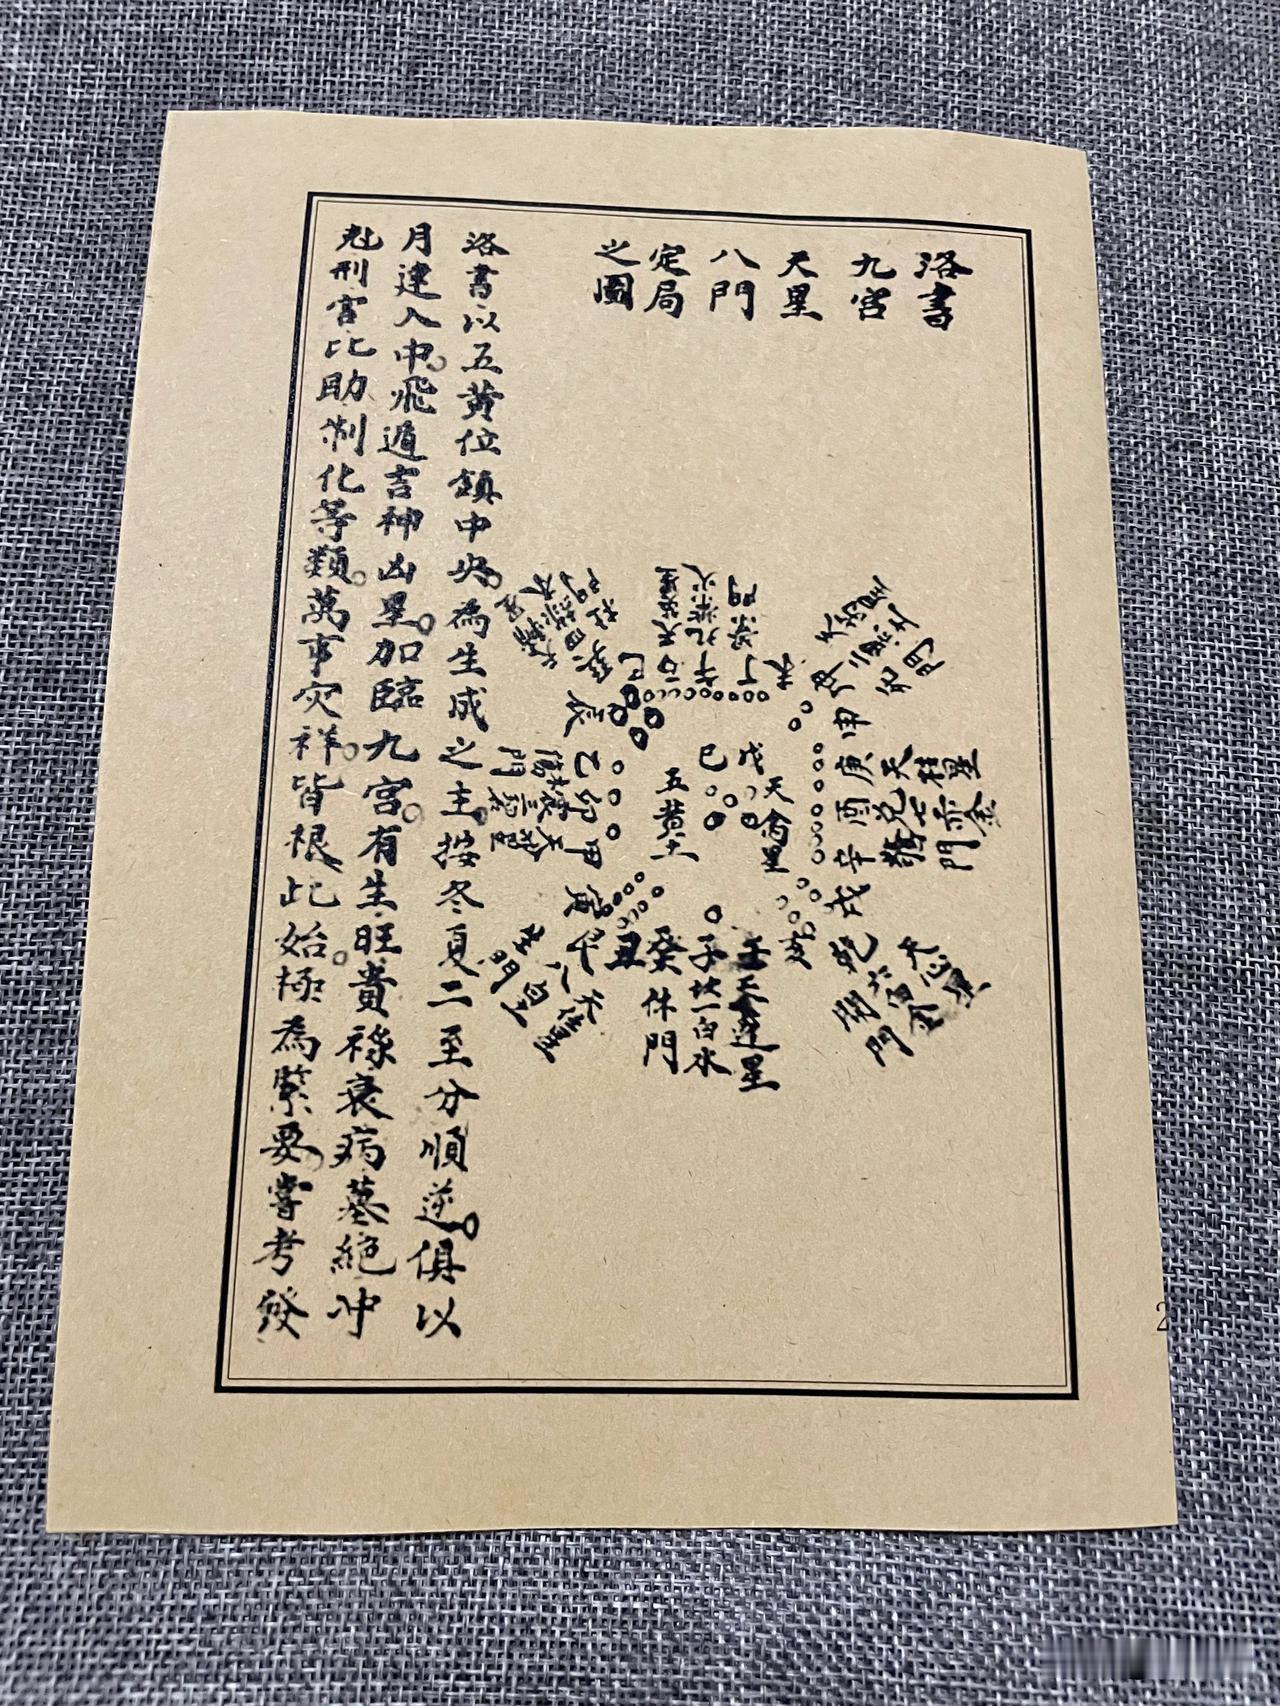 洛書
九宮
天星
八門
定局
之圖
天芮星
二黑土
死門
坤
申
未
丁
午
丙
巳
景門
九紫火
天英星
巽
四綠木
杜門
天輔星
辰
乙
卯
甲
寅
天柱星
兌七赤金
驚門
庚
酉
辛
戌
戊
己
天禽星
五黃土
天心星
六白金
開門
乾
亥
壬天蓬星
子坎一白水
癸休門
丑
艮
八白
生門
洛書以五黃位鎮中央。為生成之主。按冬夏二至分順逆。俱以
月建入中。飛遁吉神凶星。加臨九宮。有生旺貴祿衰病墓絕冲
尅刑害比助制化等類。萬事灾祥。皆根此始。極為緊要。嘗考發